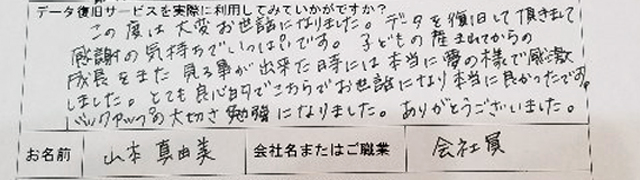 データ復旧サービスを実際に利用してみていかがですか？
この度は大変お世話になりました。データを復旧して頂きまして
感謝の気持ちでいっぱいです。子どもの産まれてからの
成長をまた見る事が出来た時には本当に夢の様で感激
しました。とても良心的でこちらでお世話になり本当に良かったです。
バックアップの大切さ勉強になりました。ありがとうございました。
お名前 山本 真由美 会社名またはご職業 会社員